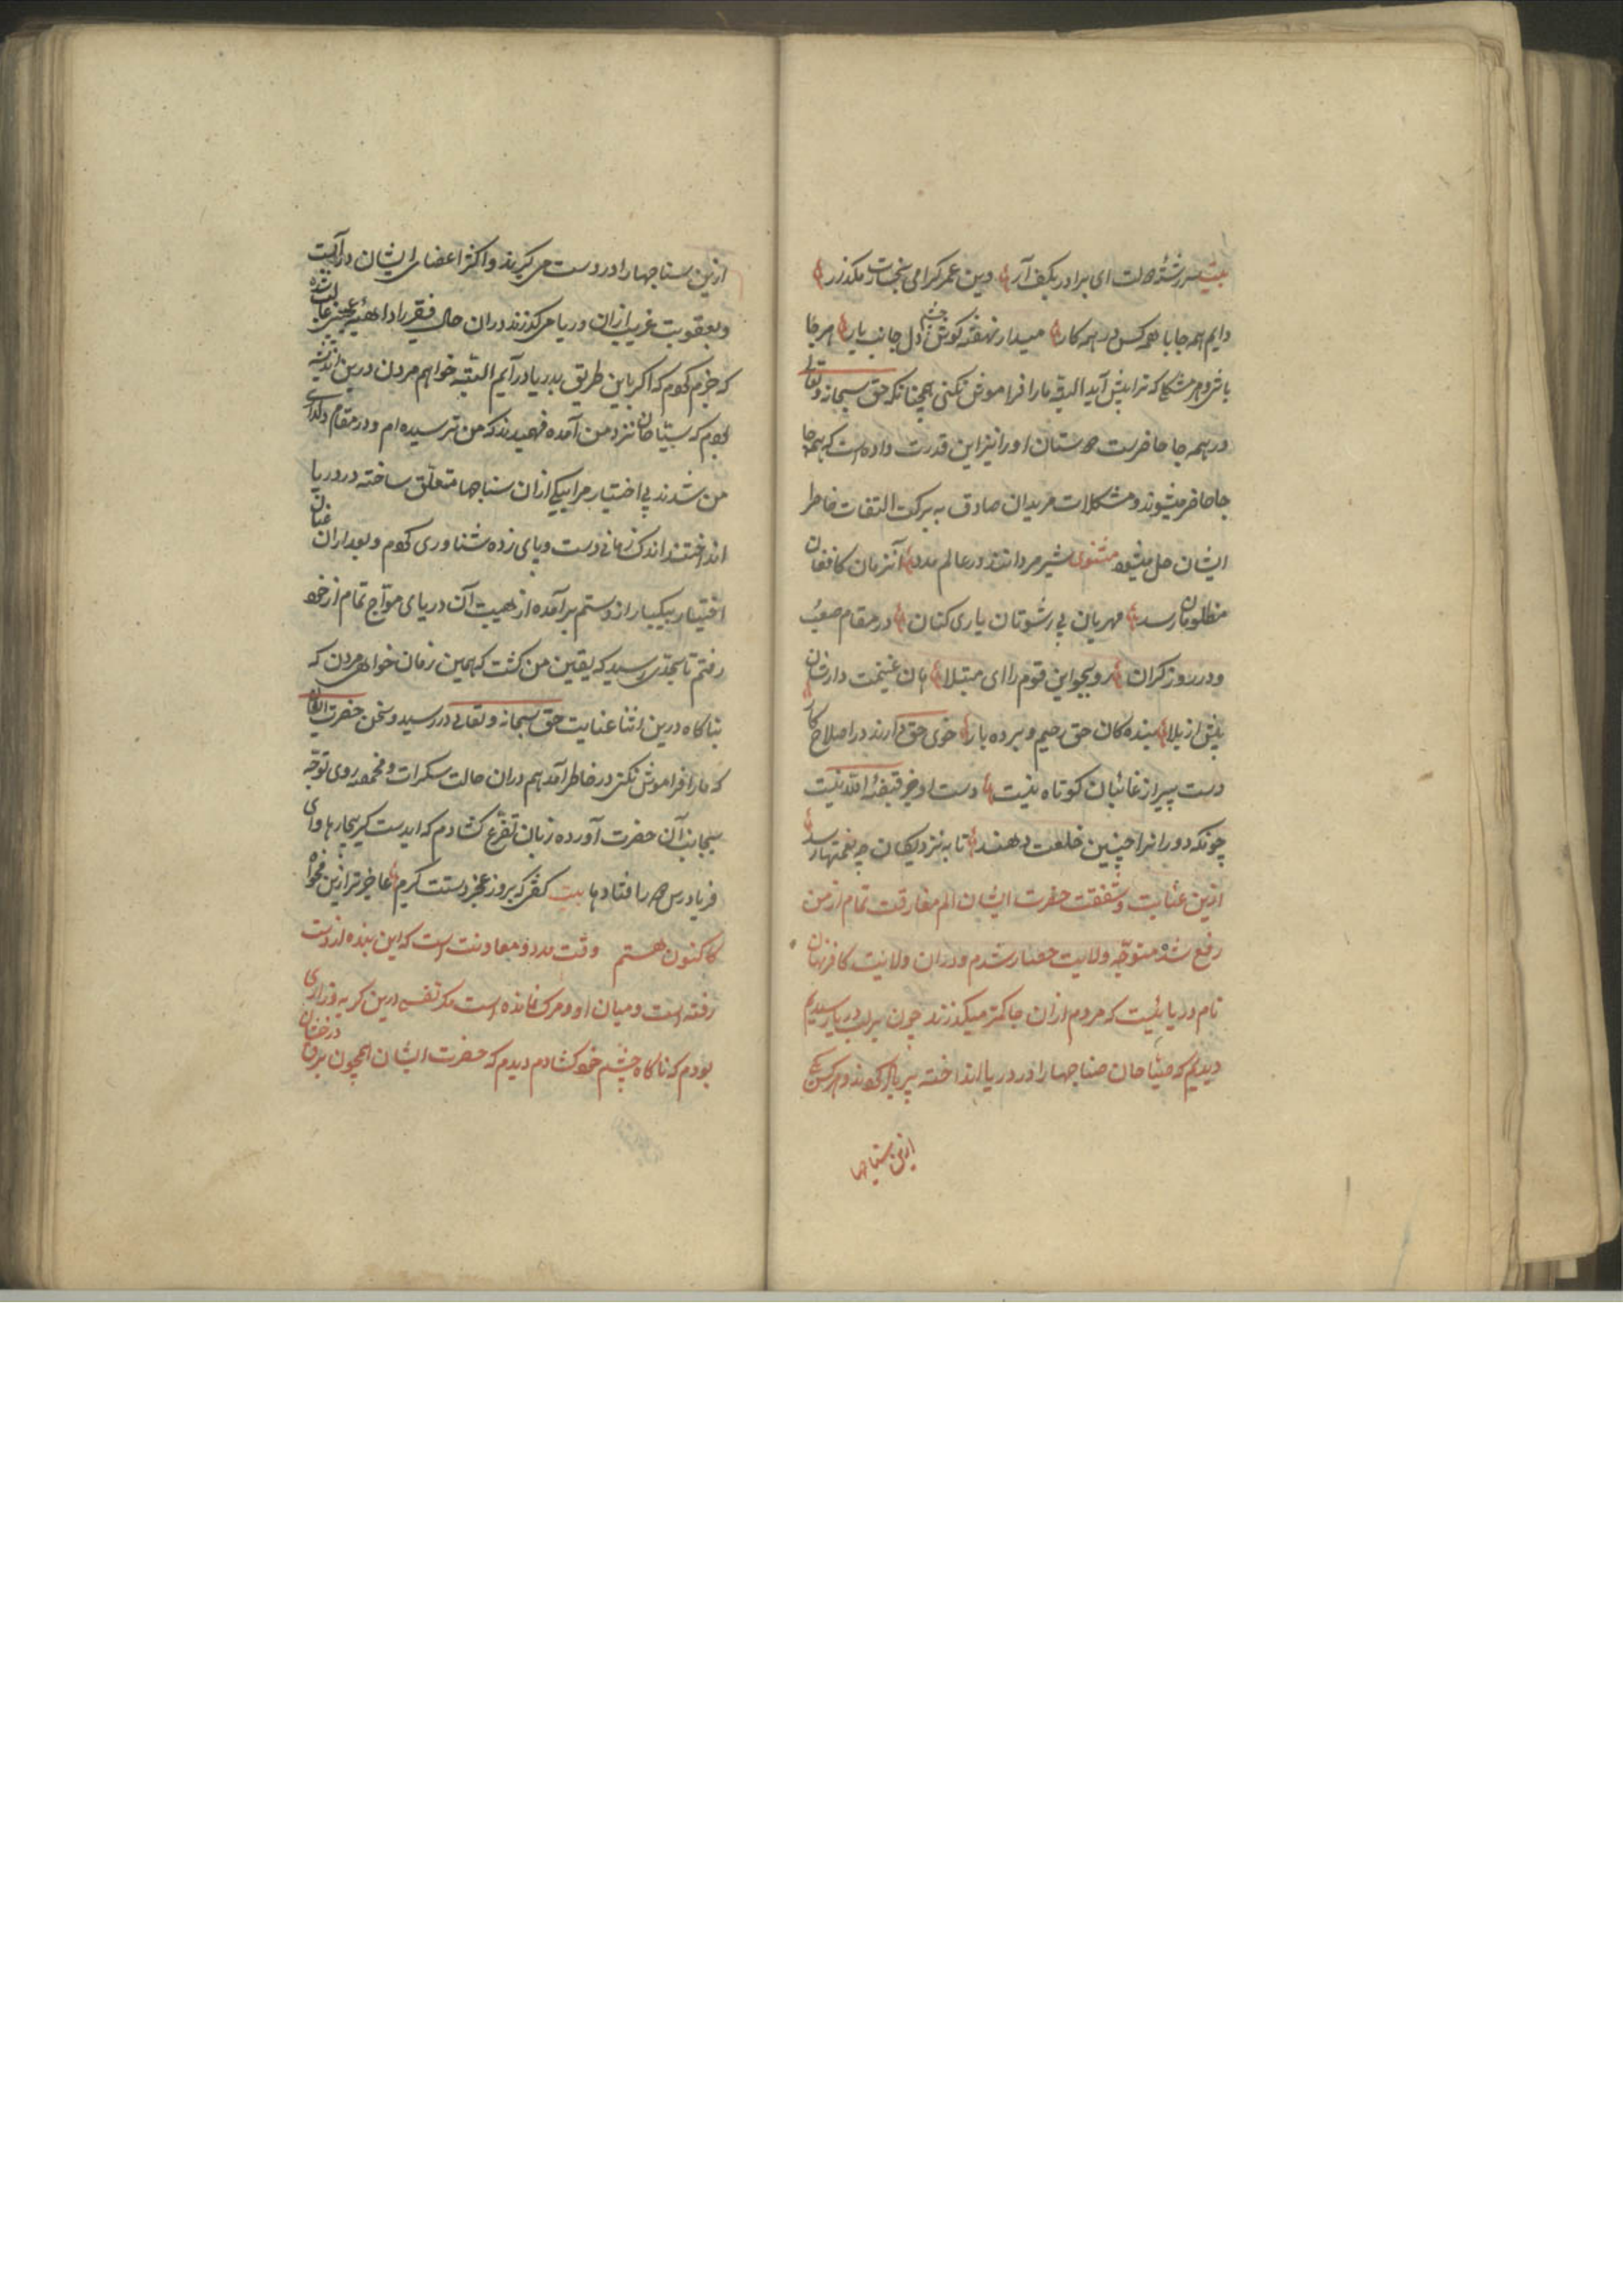 بیت سررشتهٔ دولت ای برادر بکف آر وین عمر گرامی بخسارت مگذار
دایم همه جا با همه کس در همه کار میدار نهفته چشم دل جانب یار هر جا
باشی و هر مشکلی که ترا پیش آید البته ما را فراموش نکنی همچنانکه حق سبحانه و تعالی
در همه جا حاضرست دوستان او را نیز این قدرت داده است که همه جا
حاضر میشوند و مشکلات مریدان صادق به برکت التفات خاطر
ایشان حل میشود مثنوی شیر مردانند در عالم مدد آنزمان کافغان
مظلومان رسد مهربان بی رشوتان یاری کنان در مقام صعب
و در روز گران رو بجو این قوم را ای مبتلا هان غنیمت دارشان
پیش از بلا بنده کان حق رحیم و بردبار خوی حق دارند در اصلاح کار
دست پیر از غائبان کوتاه نیست دست او جز قبضهٔ الله نیست
چونکه دورانرا چنین خلعت دهند تا به نزدیکان چه نعمتها رسد
ازین عنایت و شفقت حضرت ایشان الم مفارقت تمام از من
رفع شد متوجّه ولایت حصار شدم و دران ولایت کافرنهان
نام دریائیست که مردم ازان جا کمتر میگذرند چون بر لب دریا رسیدیم
دیدیم که صیاحان صناجها را در دریا انداخته پرباد کردند و هر کس یکی
ازین سناجها
ازین سناجها را در دست می گیرند و اکثر اعضای ایشان در آبست
و بعقوبت غریب ازان دریا می گذرند دران حال فقیر را داهیهٔ عجیبی غالب شده
که جزم کردم که اگر باین طریق بدریا در آیم البته خواهم مردن درین اندیشه
بودم که سیّاحان نزد من آمده فهمیدند که من ترسیده ام و در مقام دلداری
من شدند بی اختیار مرا بیکی ازان سناجها متعلّق ساخته در دریا
انداختند اندک زمانی دست و پای زده شناوری کردم و بعد ازان عنان
اختیار بیکبار از دستم برآمده از هیبت آن دریای موّاج تمام از خود
رفتم تا بحدّی رسید که یقین من گشت که همین زمان خواهم مردن که
بناگاه درین اثنا عنایت حق سبحانه و تعالی در رسید و سخن حضرت ایشان
که ما را فراموش نکنی در خاطر آمد هم دران حالت سکرات و مخمصه روی توجّه
بجانب آن حضرت آورده زبان تضرّع گشادم که ایدست گیر بیچارها و ای
فریادرس در افتادها بیت گفتی که بروز عجز دستت گیرم عاجز تر ازین مخواه
کاکنون هستم وقت مدد و معاونت است که این بنده از دست
رفته است و میان او و مرگ نمانده است مگر نفسی درین گریه و زاری
بودم که ناگاه چشم خود گشادم دیدم که حضرت ایشان همچون برق درخشان